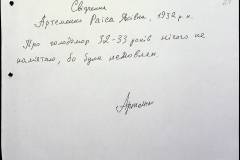 Свідчення
Артеменко Раїса Яківна, 1932 р.н.
Про голодомор 32-33 років нічого не
пам'ятаю, бо була немовлям.